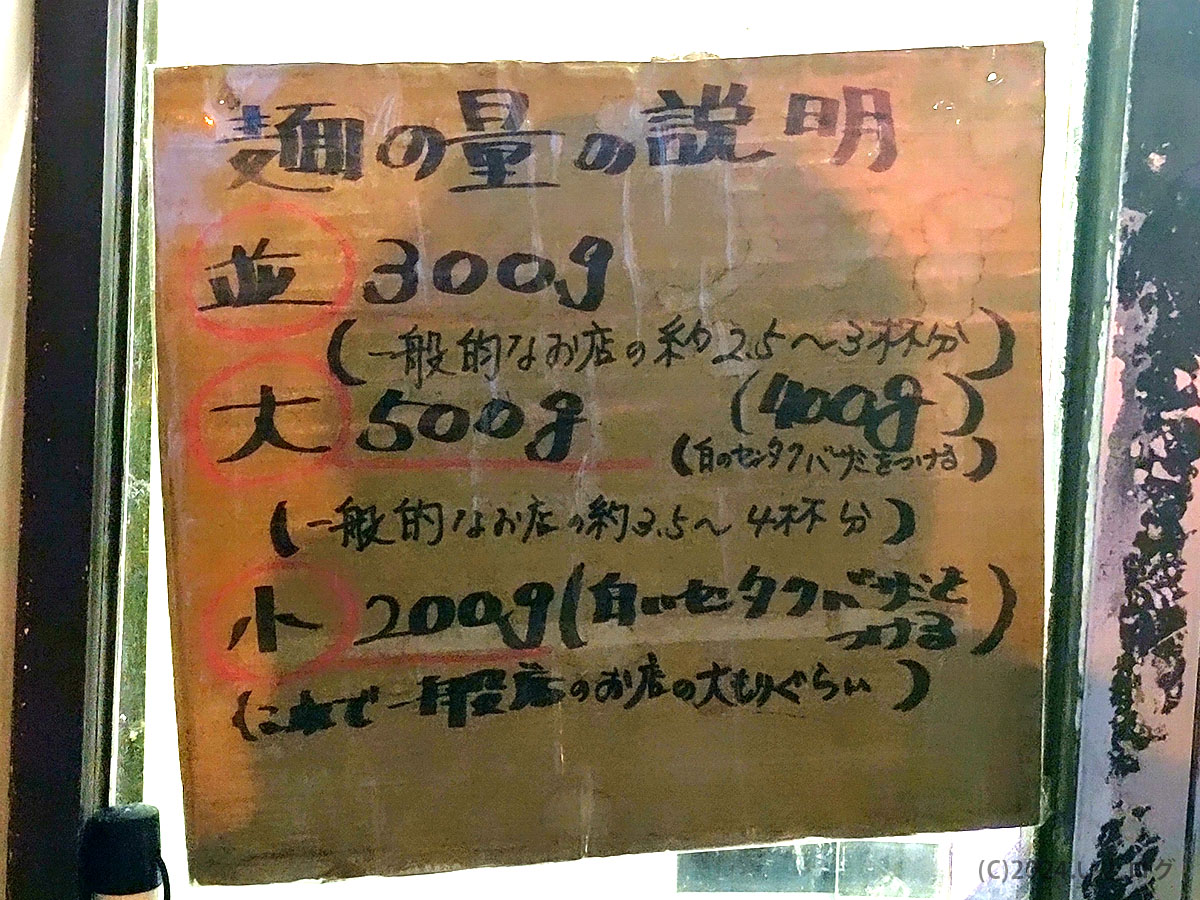 麺の量の説明
並 300g
(一般的なお店の約2.5〜3杯分)
大 500g (400g)
(白のセンタクバサミをつける)
(一般的なお店の約3.5〜4杯分)
小 200g(白いセンタクバサミを
つける)
(これで一般店のお店の大もりぐらい)
(C)2024